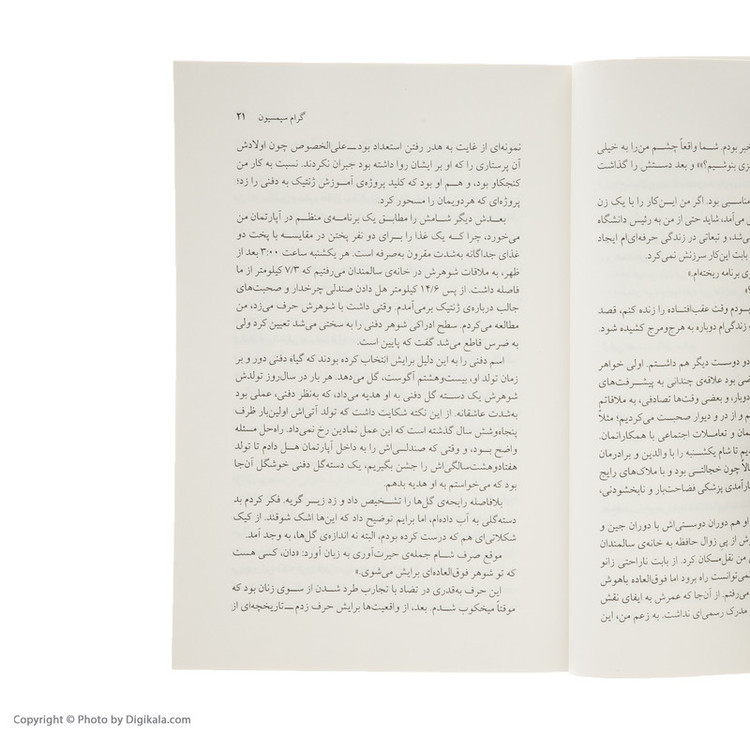 خبر بودم. شما واقعاً چشم من‌را به خیلی
یزی بنوشیم؟» و بعد دستش را گذاشت
مناسبی بود. اگر من ایـن‌کار را با یک زن
می‌آمد، شاید حتی از من به رئیس دانشگاه
ی‌شد، و تبعاتی در زندگی حرفه‌ای‌ام ایجاد
بابت این‌کار سرزنش نمی‌کرد.
ی برنامه ریخته‌ام.»
بـودم وقت عقب‌افتـاده را زنده کنم، قصد
زندگی‌ام دوباره به هرج‌ومرج کشیده شود.
دو دوست دیگر هم داشتم. اولی خواهر
ضی بود علاقه‌ی چندانی به پیشـرفت‌های
دوبار، و بعضی وقت‌ها تصادفی، به ملاقاتم
م و از در و دیوار صحبت می‌کردیم؛ مثلاً
مان و تعاملات اجتماعی با همکارانمان.
یم تا شام یکشنبه را با والدین و برادرمان
الاً چون خجالتی بود و با ملاک‌های رایج
ارآمدی پزشکی فضاحت‌بار و نابخشودنی،
او هم دوران دوستی‌اش با دوران جین و
ش از پی زوال حافظه به خانه‌ی سالمندان
ی من نقل‌مکان کرد. از بابت ناراحتی زانو
نمی‌توانست راه برود اما فوق‌العاده باهوش
می‌رفتم. از آن‌جا که عمرش به ایفای نقش
مدرک رسمی‌ای نداشت. به زعم من، این
گرام سیمسیون ۲۱
نمونه‌ای از غایت به هدر رفتن استعداد بود ــ علی‌الخصوص چون اولادش
آن پرستاری را که او بر ایشان روا داشته بود جبران نکردند. نسبت به کار من
کنجکاو بود، و هـم او بود که کلید پروژه‌ی آمـوزش ژنتیک به دفنی را زد؛
پروژه‌ای که هردویمان را مسحور کرد.
بعـدش دیگر شـامش را مطابـق یک برنامه‌ی منظـم در آپارتمان من
می‌خورد، چرا کـه یک غذا را بـرای دو نفر پختن در مقایسـه با پخت دو
غذای جداگانه به‌شدت مقرون به‌صرفه است. هر یکشنبه ساعت ۳:۰۰ بعد از
ظهر، به ملاقات شوهرش در خانه‌ی سالمندان می‌رفتیم که ۷/۳ کیلومتر از ما
فاصله داشت. از پس ۱۴/۶ کیلومتر هل دادن صندلی چرخدار و صحبت‌های
جالب درباره‌ی ژنتیک برمی‌آمدم. وقتی داشت با شوهرش حرف می‌زد، من
مطالعه می‌کردم. سطح ادراکی شوهر دفنی را به سختی می‌شد تعیین کرد ولی
به ضرس قاطع می‌شد گفت که پایین است.
اسم دفنی را به این دلیل برایش انتخاب کرده بودند که گیاه دفنی دور و بر
زمان تولد او، بیست‌وهشتم آگوست، گل می‌دهد. هر بار در سال‌روز تولدش
شوهرش یک دسـته گل دفنی به او هدیه می‌داد، که به‌نظر دفنی، عملی بود
به‌شدت عاشقانه. از این نکته شکایت داشت که تولد آتی‌اش اولین‌بار ظرف
پنجاه‌وشش سال گذشته است که این عمل نمادین رخ نمی‌داد. راه‌حل مسئله
واضح بـود، و وقتی که صندلـی‌اش را به داخل آپارتمان هـل دادم تا تولد
هفتادوهشت‌سالگی‌اش را جشن بگیریم، یک دسته‌گل دفنی خوشگل آن‌جا
بود که می‌خواستم به او هدیه بدهم.
بلافاصله رایحه‌ی گل‌ها را تشـخیص داد و زد زیـر گریه. فکر کردم بد
دسته‌گلی به آب داده‌ام، اما برایم توضیح داد که این‌ها اشک شوقند. از کیک
شکلاتی‌ای هم که درست کرده بودم، البته نه اندازه‌ی گل‌ها، به وجد آمد.
موقع صرف شـام جمله‌ی حیرت‌آوری به زبان آورد: «دان، کسی هست
که تو شوهر فوق‌العاده‌ای برایش می‌شوی.»
این حرف به‌قدری در تضاد با تجارب طرد شـدن از سـوی زنان بود که
موقتاً میخکوب شـدم. بعد، از واقعیت‌ها برایش حرف زدم ــ تاریخچه‌ای از
Copyright © Photo by Digikala.com